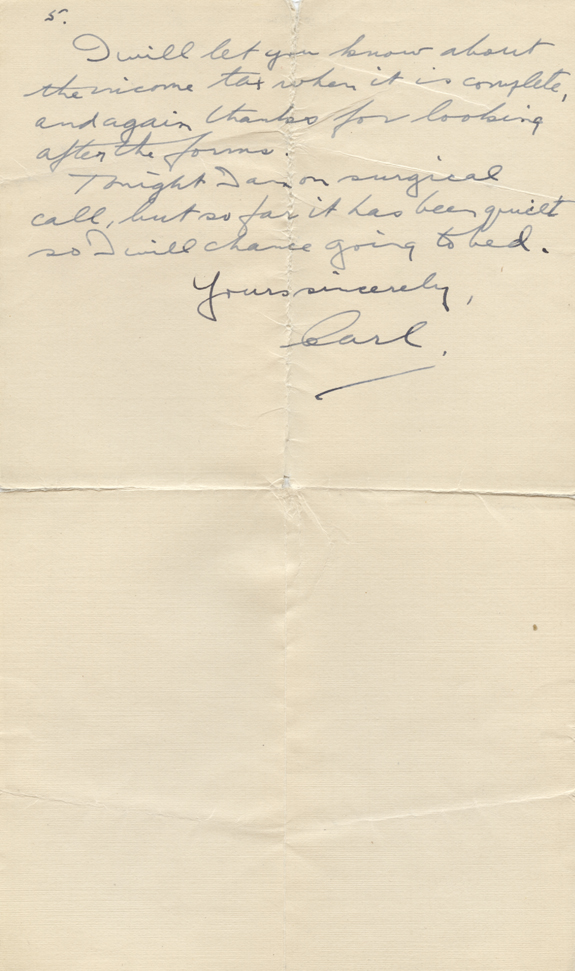 5.
I will let you know about
the income tax when it is complete,
and again thanks for looking
after the forms.
Tonight I am on surgical
call, but so far it has been quiet
so I will chance going to bed.
Yours sincerely,
Carl.